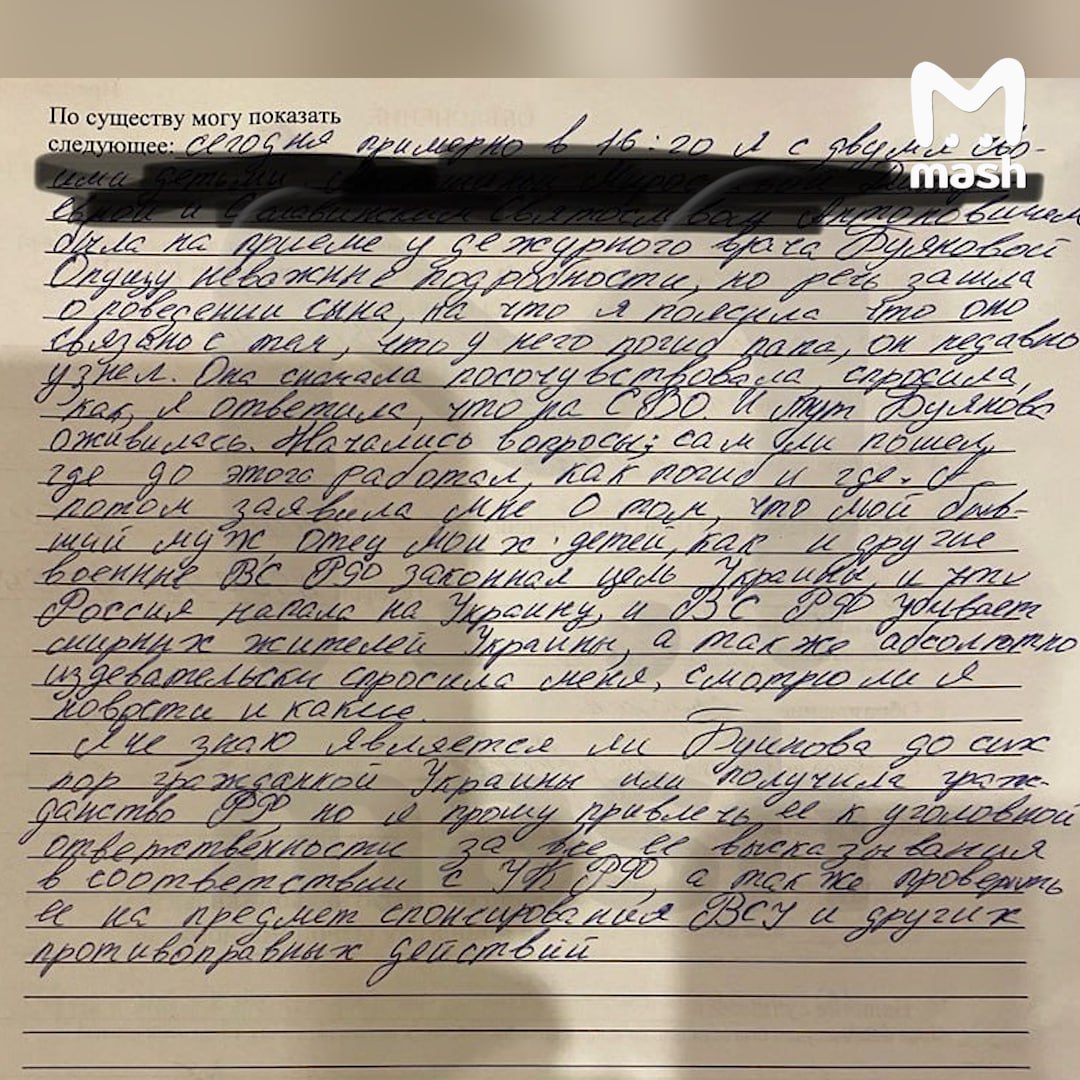 mash
По существу могу показать
следующее: сегодня примерно в 16:20 я с двумя сво-
ими детьми,
и
была на приеме у дежурного врача Буяновой
Опущу неважные подробности, но речь зашла
о поведении сына, на что я пояснила что оно
связано с тем, что у него погиб папа, он недавно
узнал. Она сначала посочувствовала, спросила,
как, я ответила, что на СВО. И тут Буянова
оживилась. Начались вопросы: сам ли пошел,
где до этого работал, как погиб и где. А
потом заявила мне о том, что мой быв-
ший муж, отец моих детей, как и другие
военные ВС РФ законная цель Украины, и что
Россия напала на Украину, и ВС РФ убивает
мирных жителей Украины, а также абсолютно
издевательски спросила меня, смотрю ли я
новости и какие.
Я не знаю является ли Буянова до сих
пор гражданкой Украины или получила граж-
данство РФ но я прошу привлечь ее к уголовной
ответственности за все ее высказывания
в соответствии с УК РФ, а также проверить
ее на предмет спонсирования ВСУ и других
противоправных действий